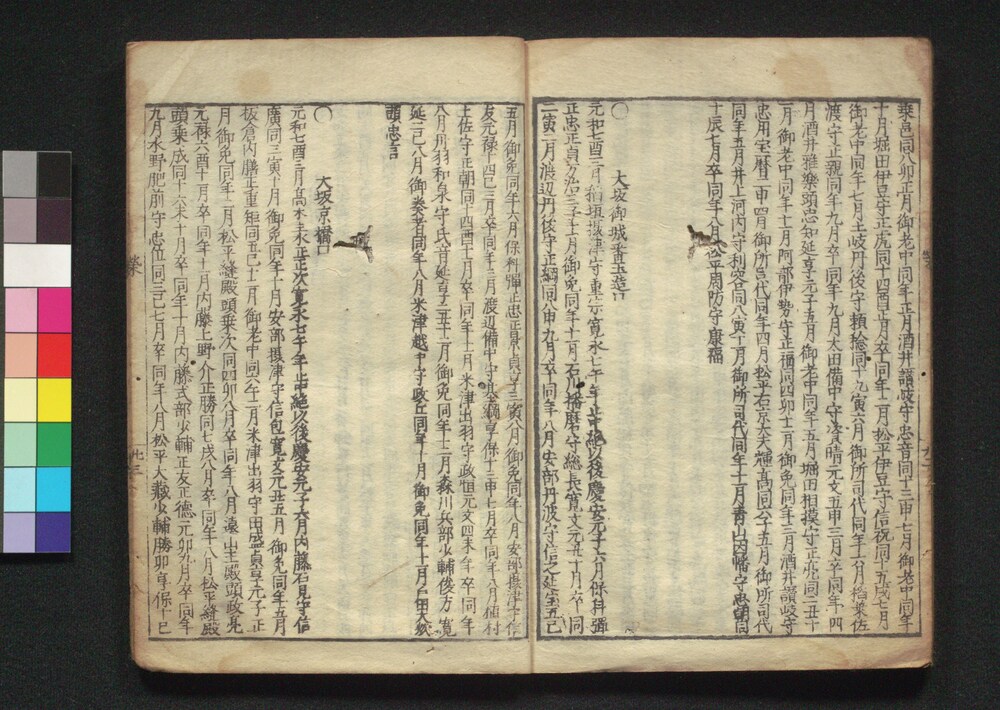 乗邑同八卯正月御老中同年正月酒井讃岐守忠音同十三申七月御老中同年
十月堀田伊豆守正虎同十四酉正月卒同年二月松平伊豆守信祝同十五戌七月
御老中同年七月土岐丹後守頼稔同十九寅六月御所司代同年六月稲葉佐
渡守正親同年九月卒同年九月太田備中守資晴元文五申二月卒同年四
月酒井雅樂頭忠知延享元子五月御老中同年五月堀田相摸守正亮同二丑十
一月御老中同年十一月阿部伊勢守正福同四卯十二月御免同年三月酒井讃岐守
忠用宝暦二申四月御所司代同年四月松平右京大夫輝高同六子五月御所司代
同年五月井上河内守利容同八寅十一月御所司代同年十一月青山因幡守忠朝同
十辰七月卒同年八月松平周防守康福
○ 大坂御城番玉造口
元和七酉三月稲垣摂津守重宗寛永七午年止中絶以後慶安元子六月保科彈
正忠正貞万治三子十一月御免同年十一月石川播磨守総長寛文元丑十月卒同
二寅二月渡辺丹後守正綱同八申九月卒同年八月安部丹波守信之延宝五巳
五月御免同年六月保科彈正忠正景貞享三寅八月御免同年八月安部摂津守信
友元禄十四巳三月卒同年三月渡辺備中守基綱享保十三申七月卒同年八月植村
土佐守正朝同十四酉十月卒同年十二月米津出羽守政恒元文四未年卒同年
八月丹羽和泉守氏音延享二丑十二月御免同年十二月森川兵部少輔俊方寛
延二巳八月御奏者同年八月米津越中守政丘同年十月御免同年十二月戸田大炊
頭忠言
○ 大坂京橋口
元和七酉三月高木主水正正次寛永七午年止中絶以後慶安元子六月内藤石見守信
廣同三寅十月御免同年十月安部摂津守信包寛文元丑五月御免同年五月
板倉内膳正重矩同五巳十二月御老中同六午二月米津出羽守田盛貞享元子正
月御免同年二月松平縫殿頭乗次同四卯八月卒同年八月遠山主殿頭政亮
元禄六酉十月卒同年十一月内藤上野介正勝同七戌八月卒同年八月松平縫殿
頭乗成同十六未十月卒同年十月内藤式部少輔正友正徳元卯九月卒同年
九月水野肥前守忠位同三巳七月卒同年八月松平大蔵少輔勝以享保十巳